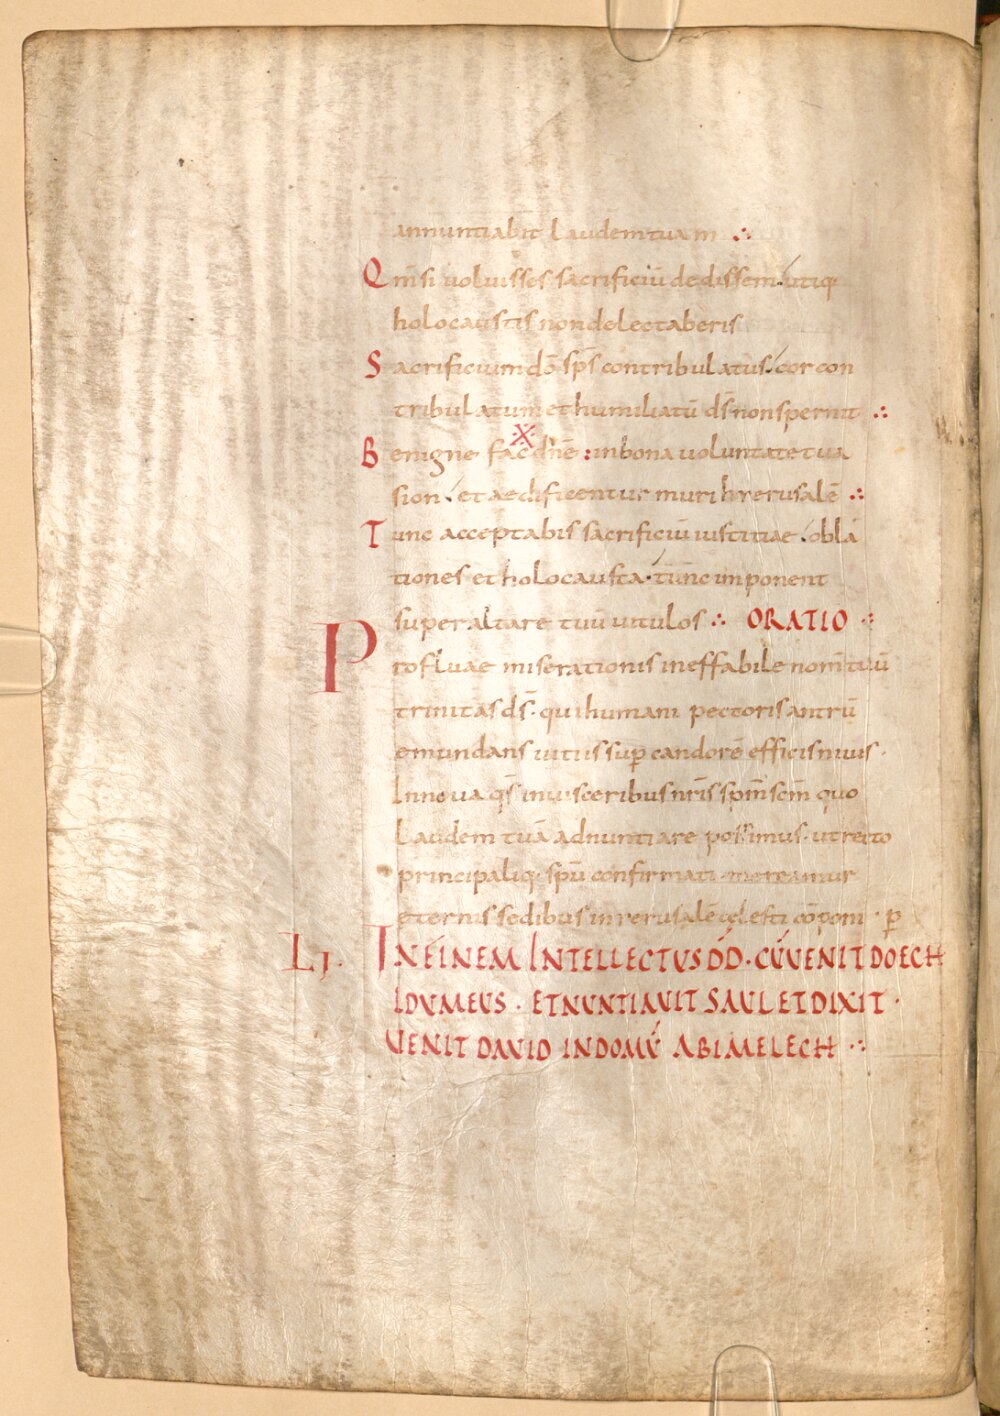 annuntiabit laudem tuam ∴
Qm̄ si voluisses sacrificiū dedissem utiq;
holocaustis non delectaberis
Sacrificium dō sp̄s contribulatus cor con
tribulatum et humiliatū ds̄ non spernit ∴
Benigne fac dn̄e : in bona voluntate tua
sion et aedificentur muri hierusalē ∴
Tunc acceptabis sacrificiū iustitiae obla
tiones et holocausta · tunc imponent
super altare tuū vitulos ∴ ORATIO ∴
Profluae miserationis ineffabile nom̄ tuū
trinitas ds̄ · qui humani pectoris antrū
emundans vitiis sup̄ candorē efficis nivis ·
Innova qs̄ in visceribus nr̄is sp̄m sc̄m quo
Laudem tuā adnuntiare possimus · ut recto
principaliq; spū confirmati mereamur
eternis sedibus in ierusalē cęlesti cōponi · p̄
LI · IN FINEM INTELLECTUS DD̄ · CŪ VENIT DOECH
IDUMEUS · ET NUNTIAVIT SAUL ET DIXIT ·
VENIT DAVID IN DOMŪ ABIMELECH ∴